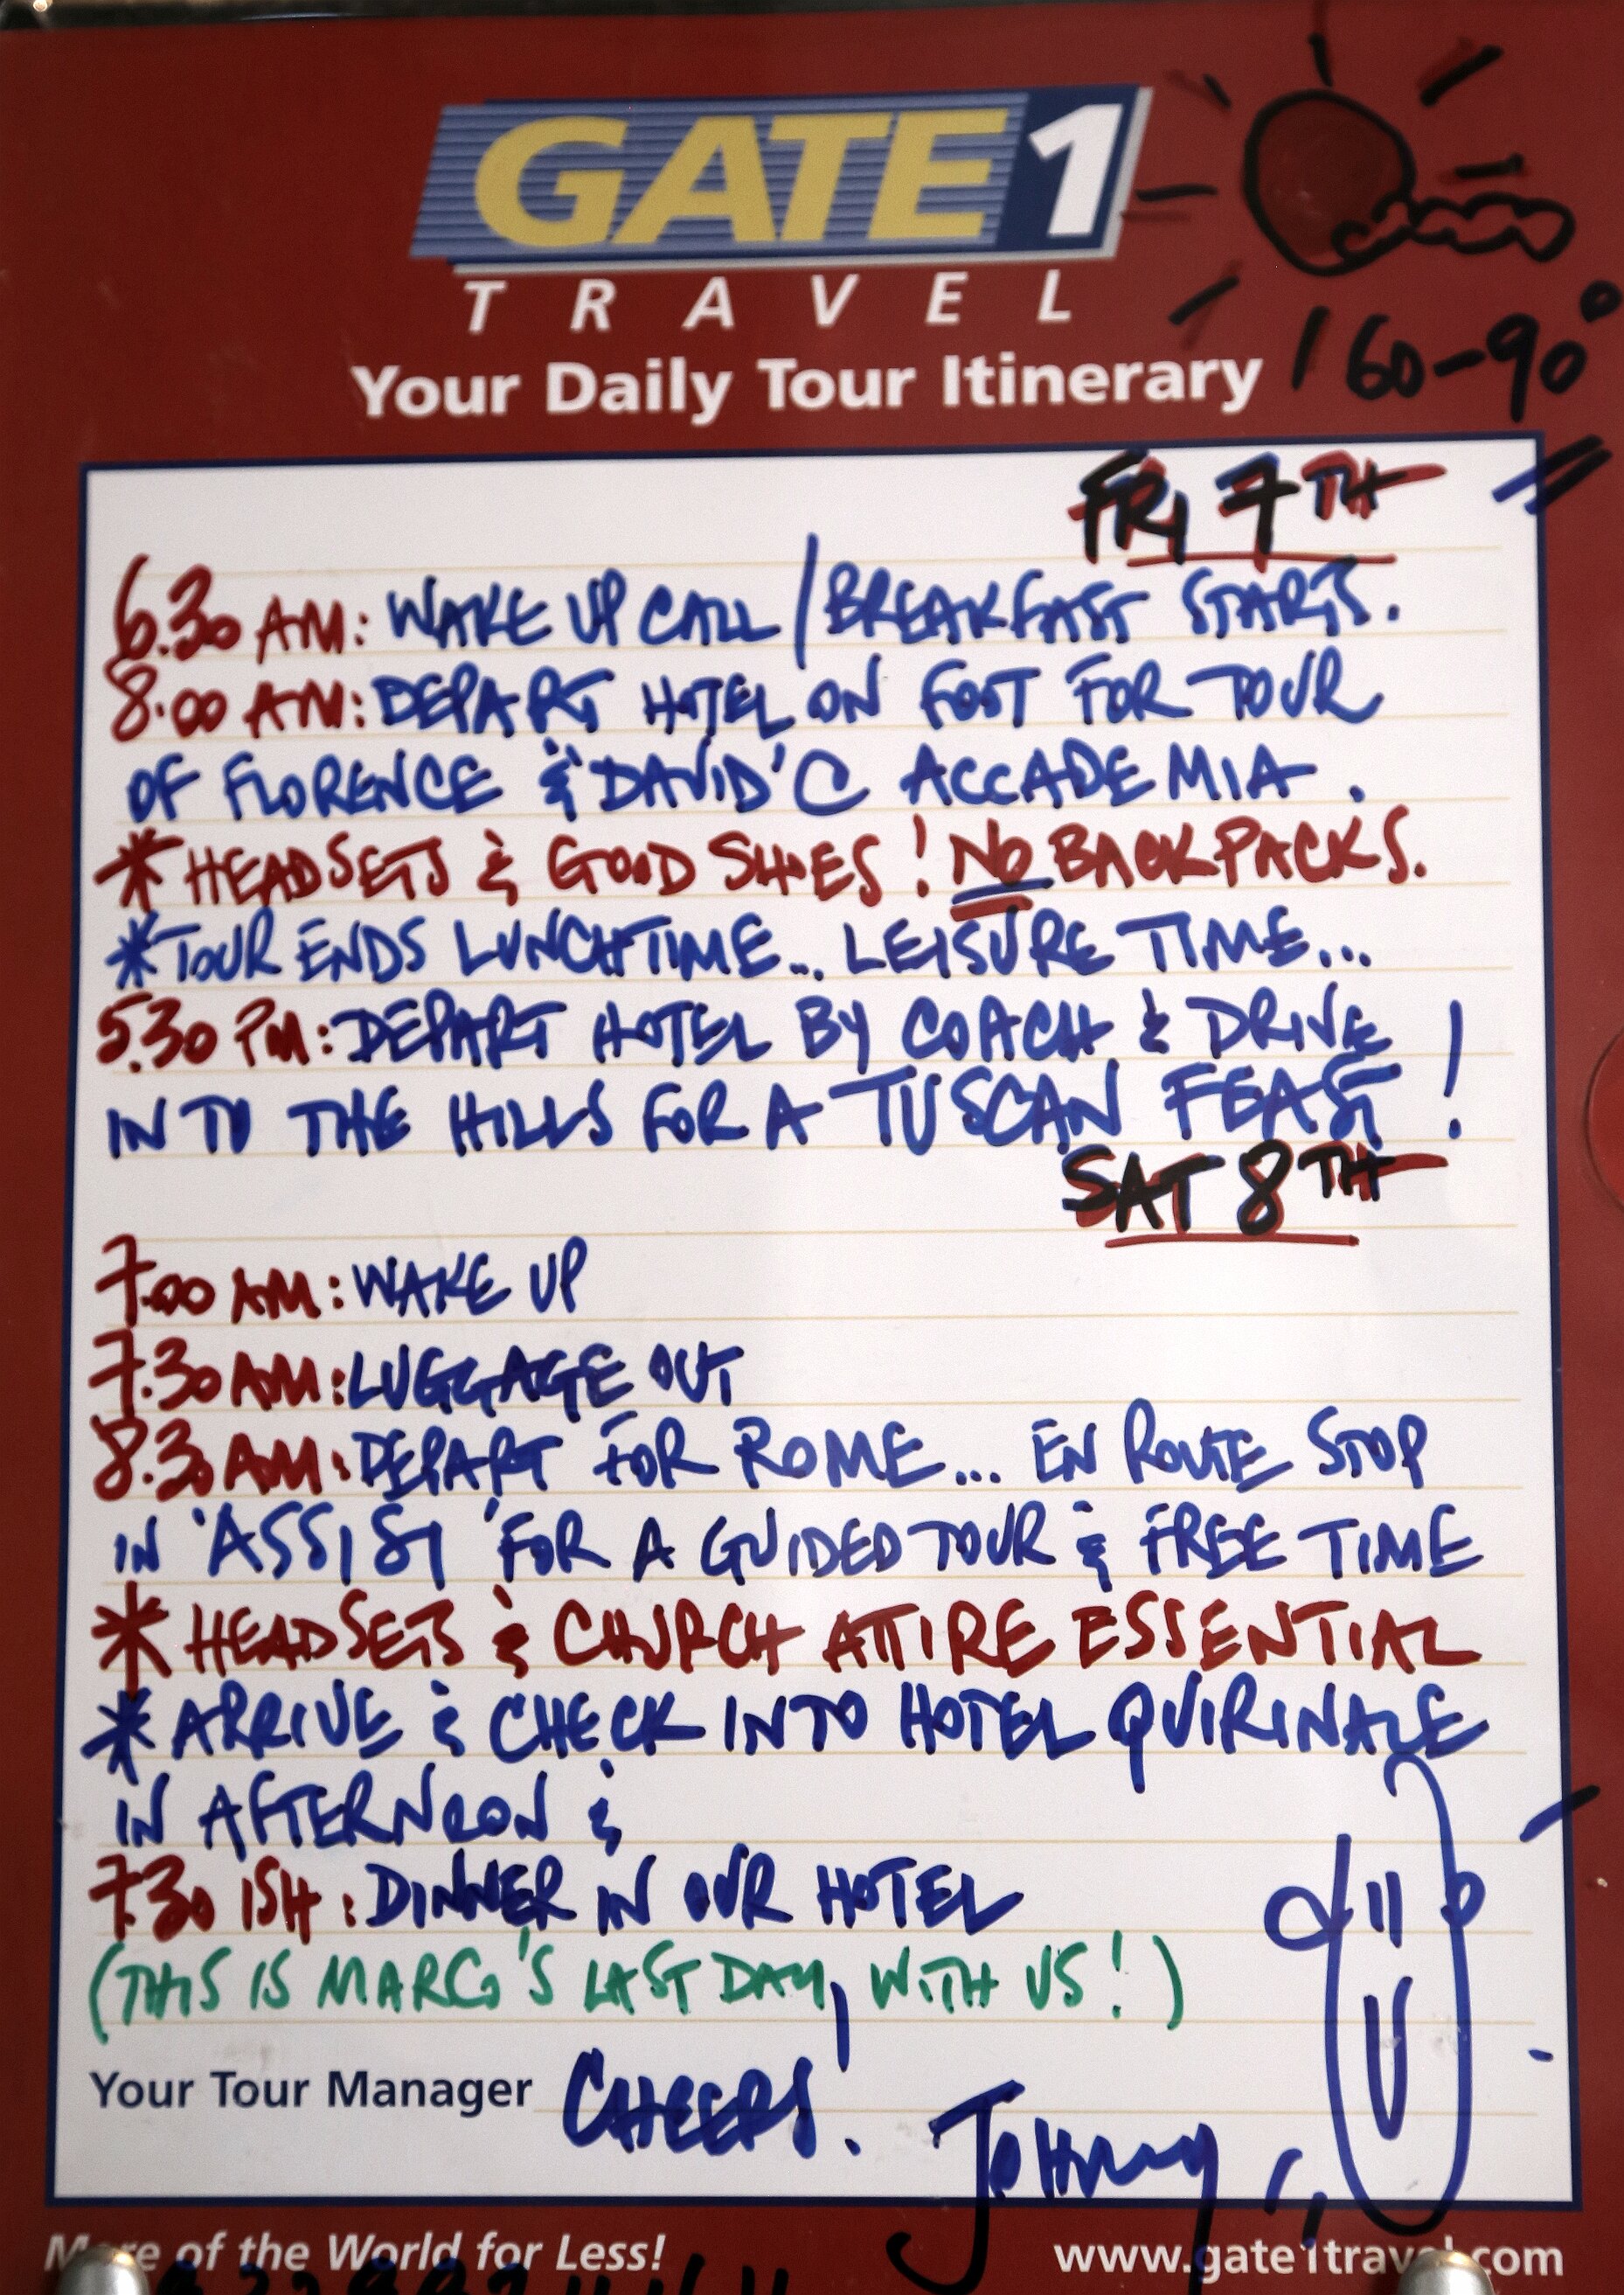 GATE 1
TRAVEL
Your Daily Tour Itinerary
60-90°
FRI 7TH
6.30 AM: WAKE UP CALL / BREAKFAST STARTS.
8.00 AM: DEPART HOTEL ON FOOT FOR TOUR
OF FLORENCE & 'DAVID' C ACCADEMIA.
* HEADSETS & GOOD SHOES! NO BACKPACKS.
* TOUR ENDS LUNCHTIME... LEISURE TIME...
5.30 PM: DEPART HOTEL BY COACH & DRIVE
INTO THE HILLS FOR A TUSCAN FEAST!
SAT 8TH
7.00 AM: WAKE UP
7.30 AM: LUGGAGE OUT
8.30 AM: DEPART FOR ROME... EN ROUTE STOP
IN 'ASSISI' FOR A GUIDED TOUR & FREE TIME
* HEADSETS & CHURCH ATTIRE ESSENTIAL
* ARRIVE & CHECK INTO HOTEL QUIRINALE
IN AFTERNOON &
7.30 ISH: DINNER IN OUR HOTEL
(THIS IS MARCO'S LAST DAY WITH US!)
Your Tour Manager CHEERS! JOHNNY
More of the World for Less! www.gate1travel.com